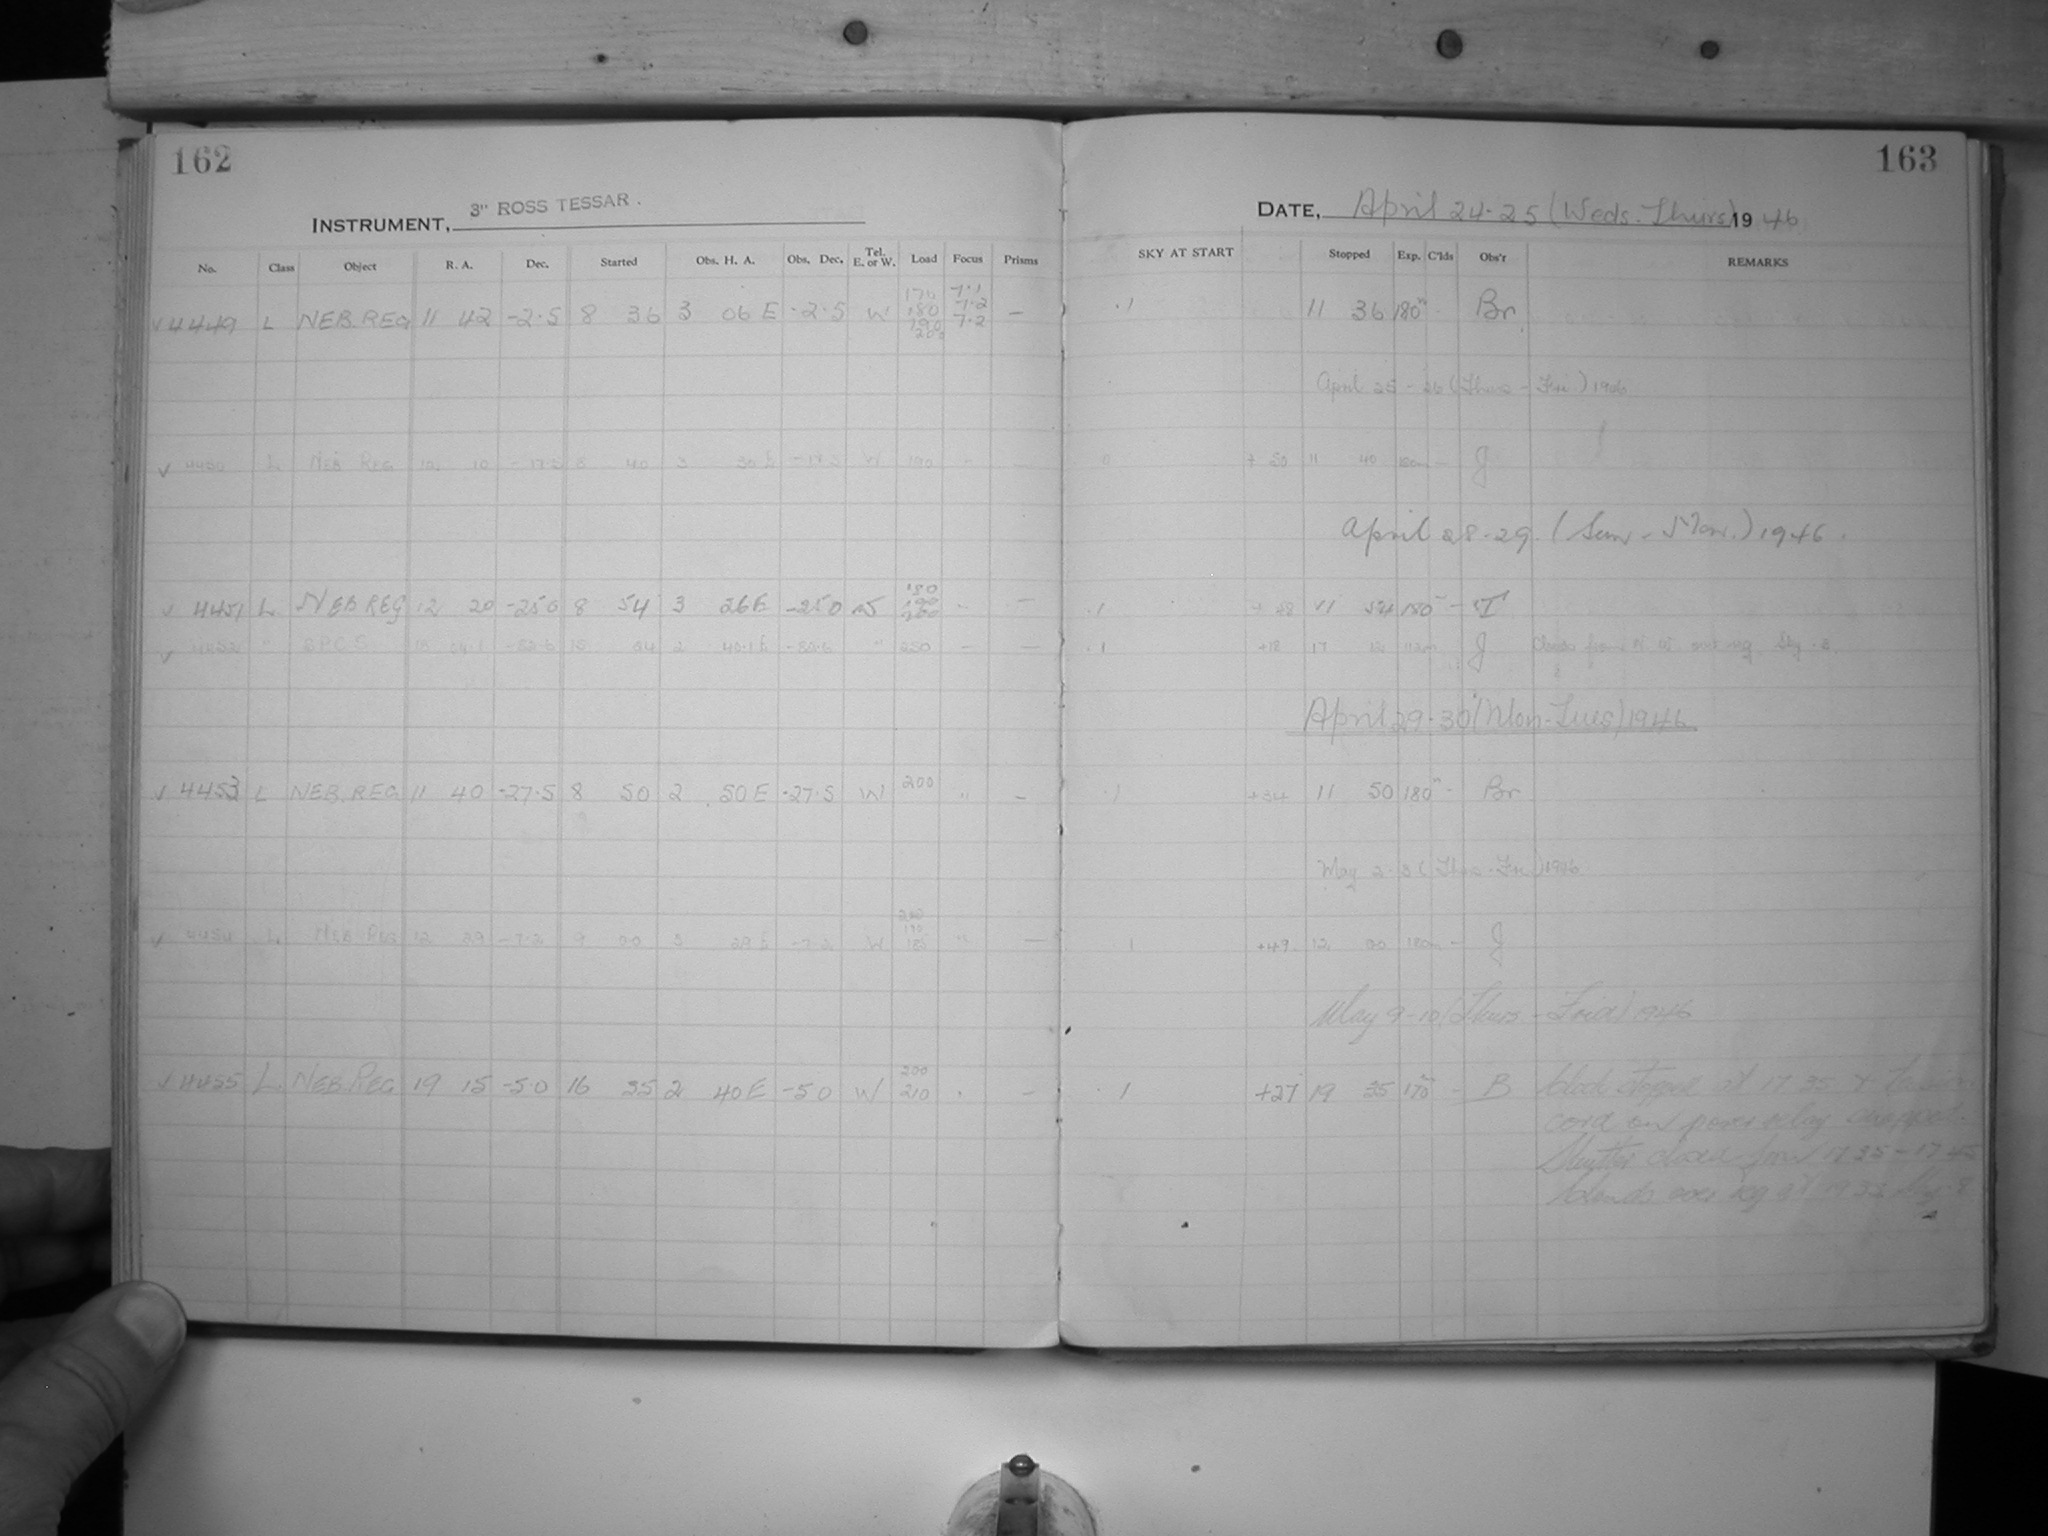 162
INSTRUMENT, 3" ROSS TESSAR.
No. Class Object R. A. Dec. Started Obs. H. A. Obs. Dec. Tel. E. or W. Load Focus Prisms
170 7.1
180 7.2
√ 4449 L NEB. REG 11 42 -2.5 8 36 3 06 E -2.5 W 190 7.2 —
200
√ 4450 L NEB REG 12 10 -17.5 8 40 3 30 E -17.5 W 190 - —
180
√ 4451 L NEB REG 12 20 -25 0 8 54 3 26 E -25 0 W 190 - —
200
√ 4452 " SPCS -82.6 15 2 40.1 E -82.6 " 250 — —
√ 4453 L NEB. REG 11 40 -27.5 8 50 2 50 E -27.5 W 200 " —
190
√ 4454 L NEB REG 12 29 -7.2 9 00 3 29 E -7.2 W 185 " —
200
√ 4455 L. NEB. REG 19 15 -5.0 16 35 2 40 E -5 0 W 210 —
163
DATE, April 24-25 (Weds-Thurs) 1946
SKY AT START Stopped Exp. C'lds Obs'r REMARKS
.1 11 36 180m Br
April 25-26 (Thurs - Fri) 1946
0 +50 11 40 180m — J
April 28-29. (Sun - Mon.) 1946.
.1 11 54 180m — T
.1 +18 17 J Clouds from N. W.
April 29-30 (Mon-Tues) 1946
.1 +34 11 50 180m - Br
May 2-3 (Thurs-Fri) 1946
1 +49 12 00 180m - J
May 9-10 (Thurs - Frid) 1946
.1 +27 19 35 170m - B Clock stopped at 17 35 &
cord on
Shutter closed from 17 35 - 17 45
Clouds over reg at 19 33